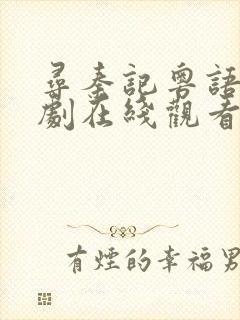 尋秦記粵語
劇在綫觀看
有煙的幸福男